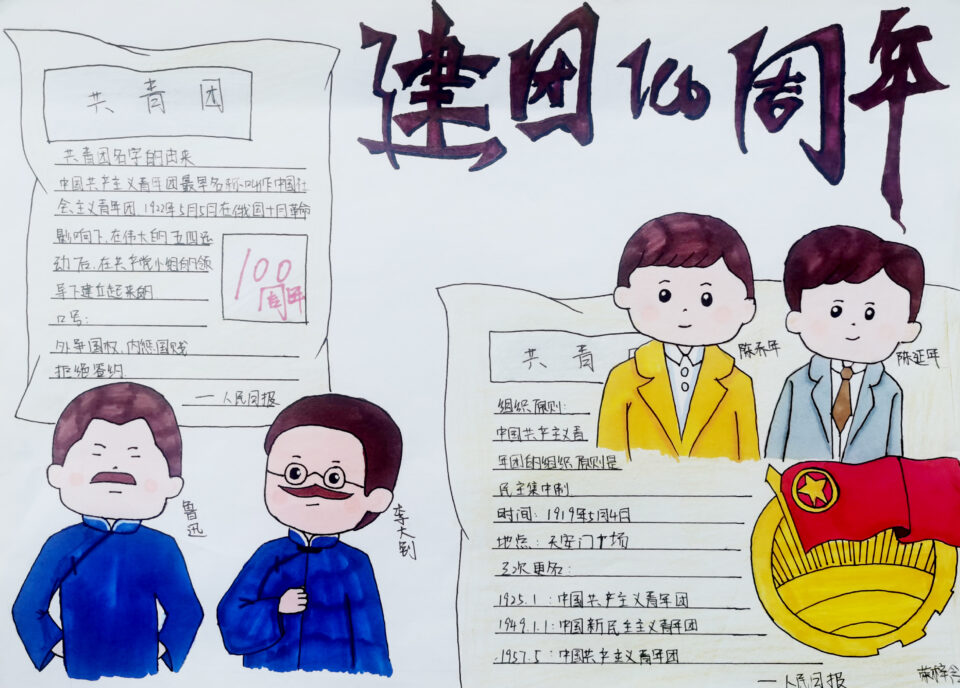 建团100周年
共青团
共青团名字的由来
中国共产主义青年团最早名称叫作中国社
会主义青年团 1922年5月5日在俄国十月革命
影响下,在伟大的五四运
动后,在共产党小组的领
导下建立起来的
100
周年
口号:
外争国权,内惩国贼
拒绝签约
——人民日报
鲁迅
李大钊
陈乔年
陈延年
共青
组织原则:
中国共产主义青
年团的组织原则是
民主集中制
时间:1919年5月4日
地点:天安门广场
3次更名:
1925.1:中国共产主义青年团
1949.1.1:中国新民主主义青年团
1957.5:中国共产主义青年团
——人民日报